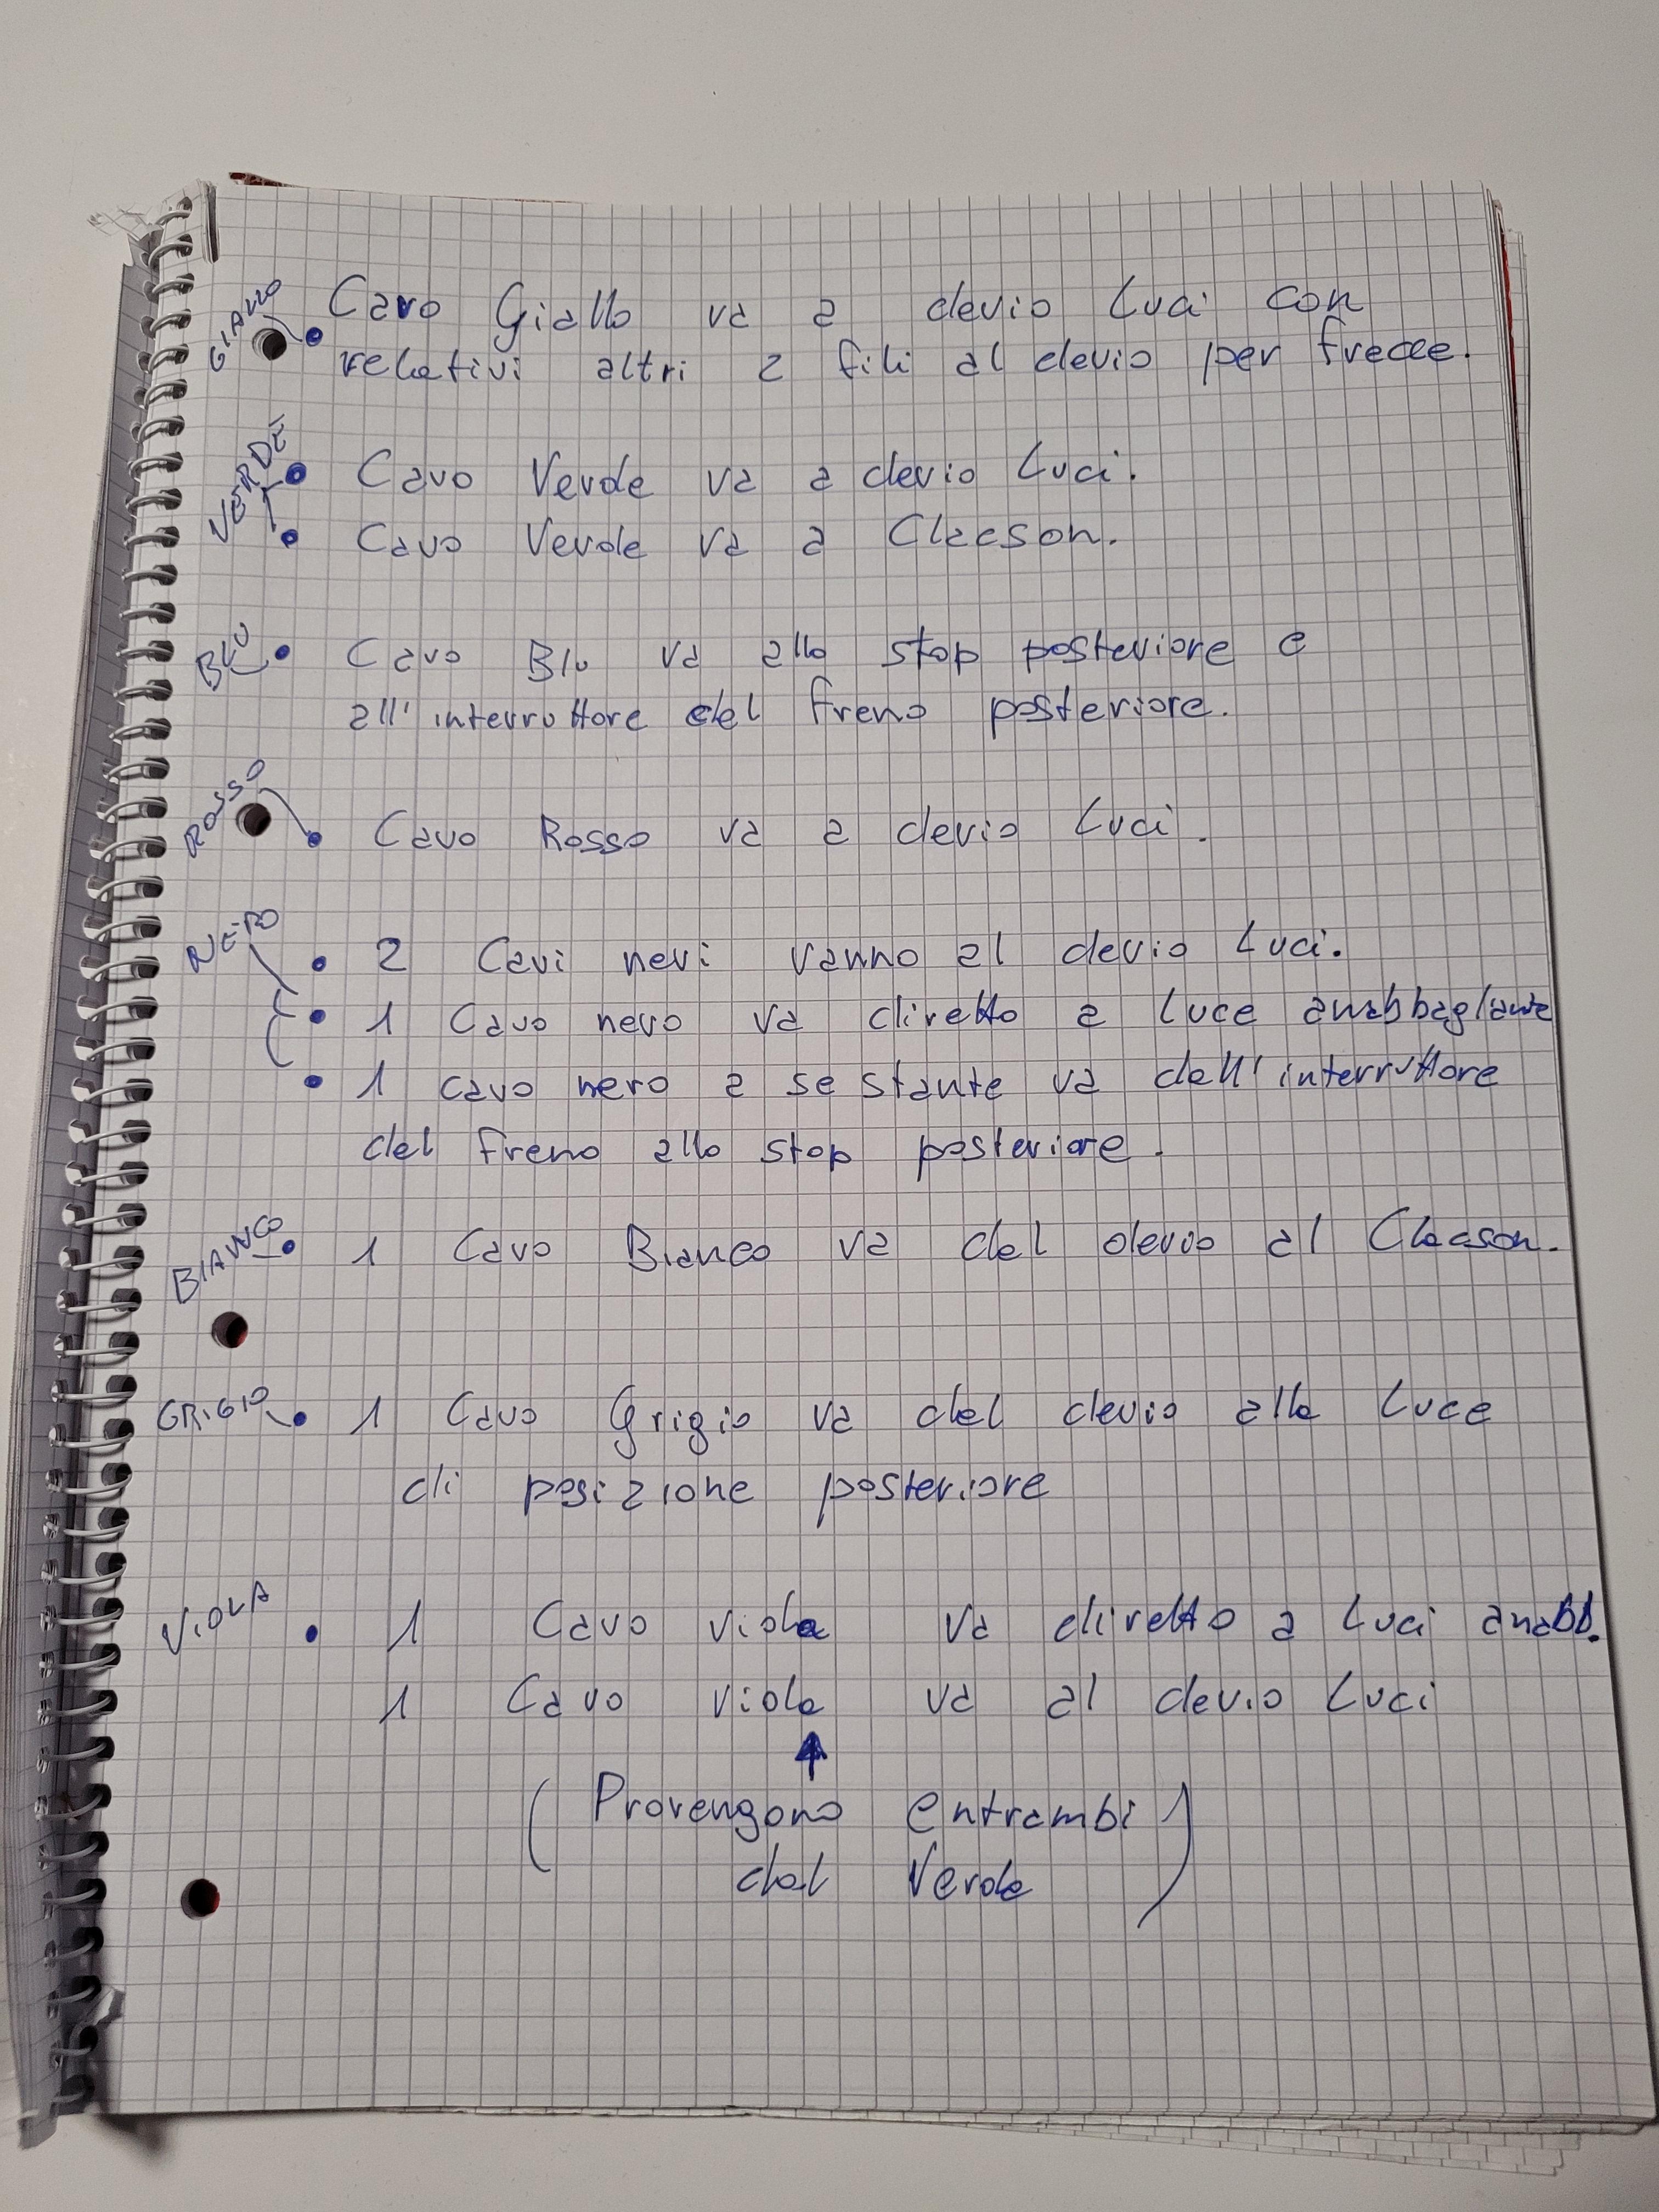 GIALLO
Cavo Giallo va a devio Luci con
relativi altri 2 fili al devio per frecce.
VERDE
Cavo Verde va a devio Luci.
Cavo Verde va a Clacson.
BLU
Cavo Blu va allo stop posteriore e
all'interruttore del freno posteriore.
ROSSO
Cavo Rosso va a devio Luci.
NERO
2 Cavi neri vanno al devio Luci.
1 Cavo nero va diretto a Luce anabbagliante
1 cavo nero a se stante va dall'interruttore
del freno allo stop posteriore.
BIANCO
1 Cavo Bianco va dal devio al Clacson.
GRIGIO
1 Cavo Grigio va dal devio alla Luce
di posizione posteriore
VIOLA
1 Cavo viola va diretto a Luci anabb.
1 Cavo viola va al devio Luci
(Provengono entrambi
dal Verde)